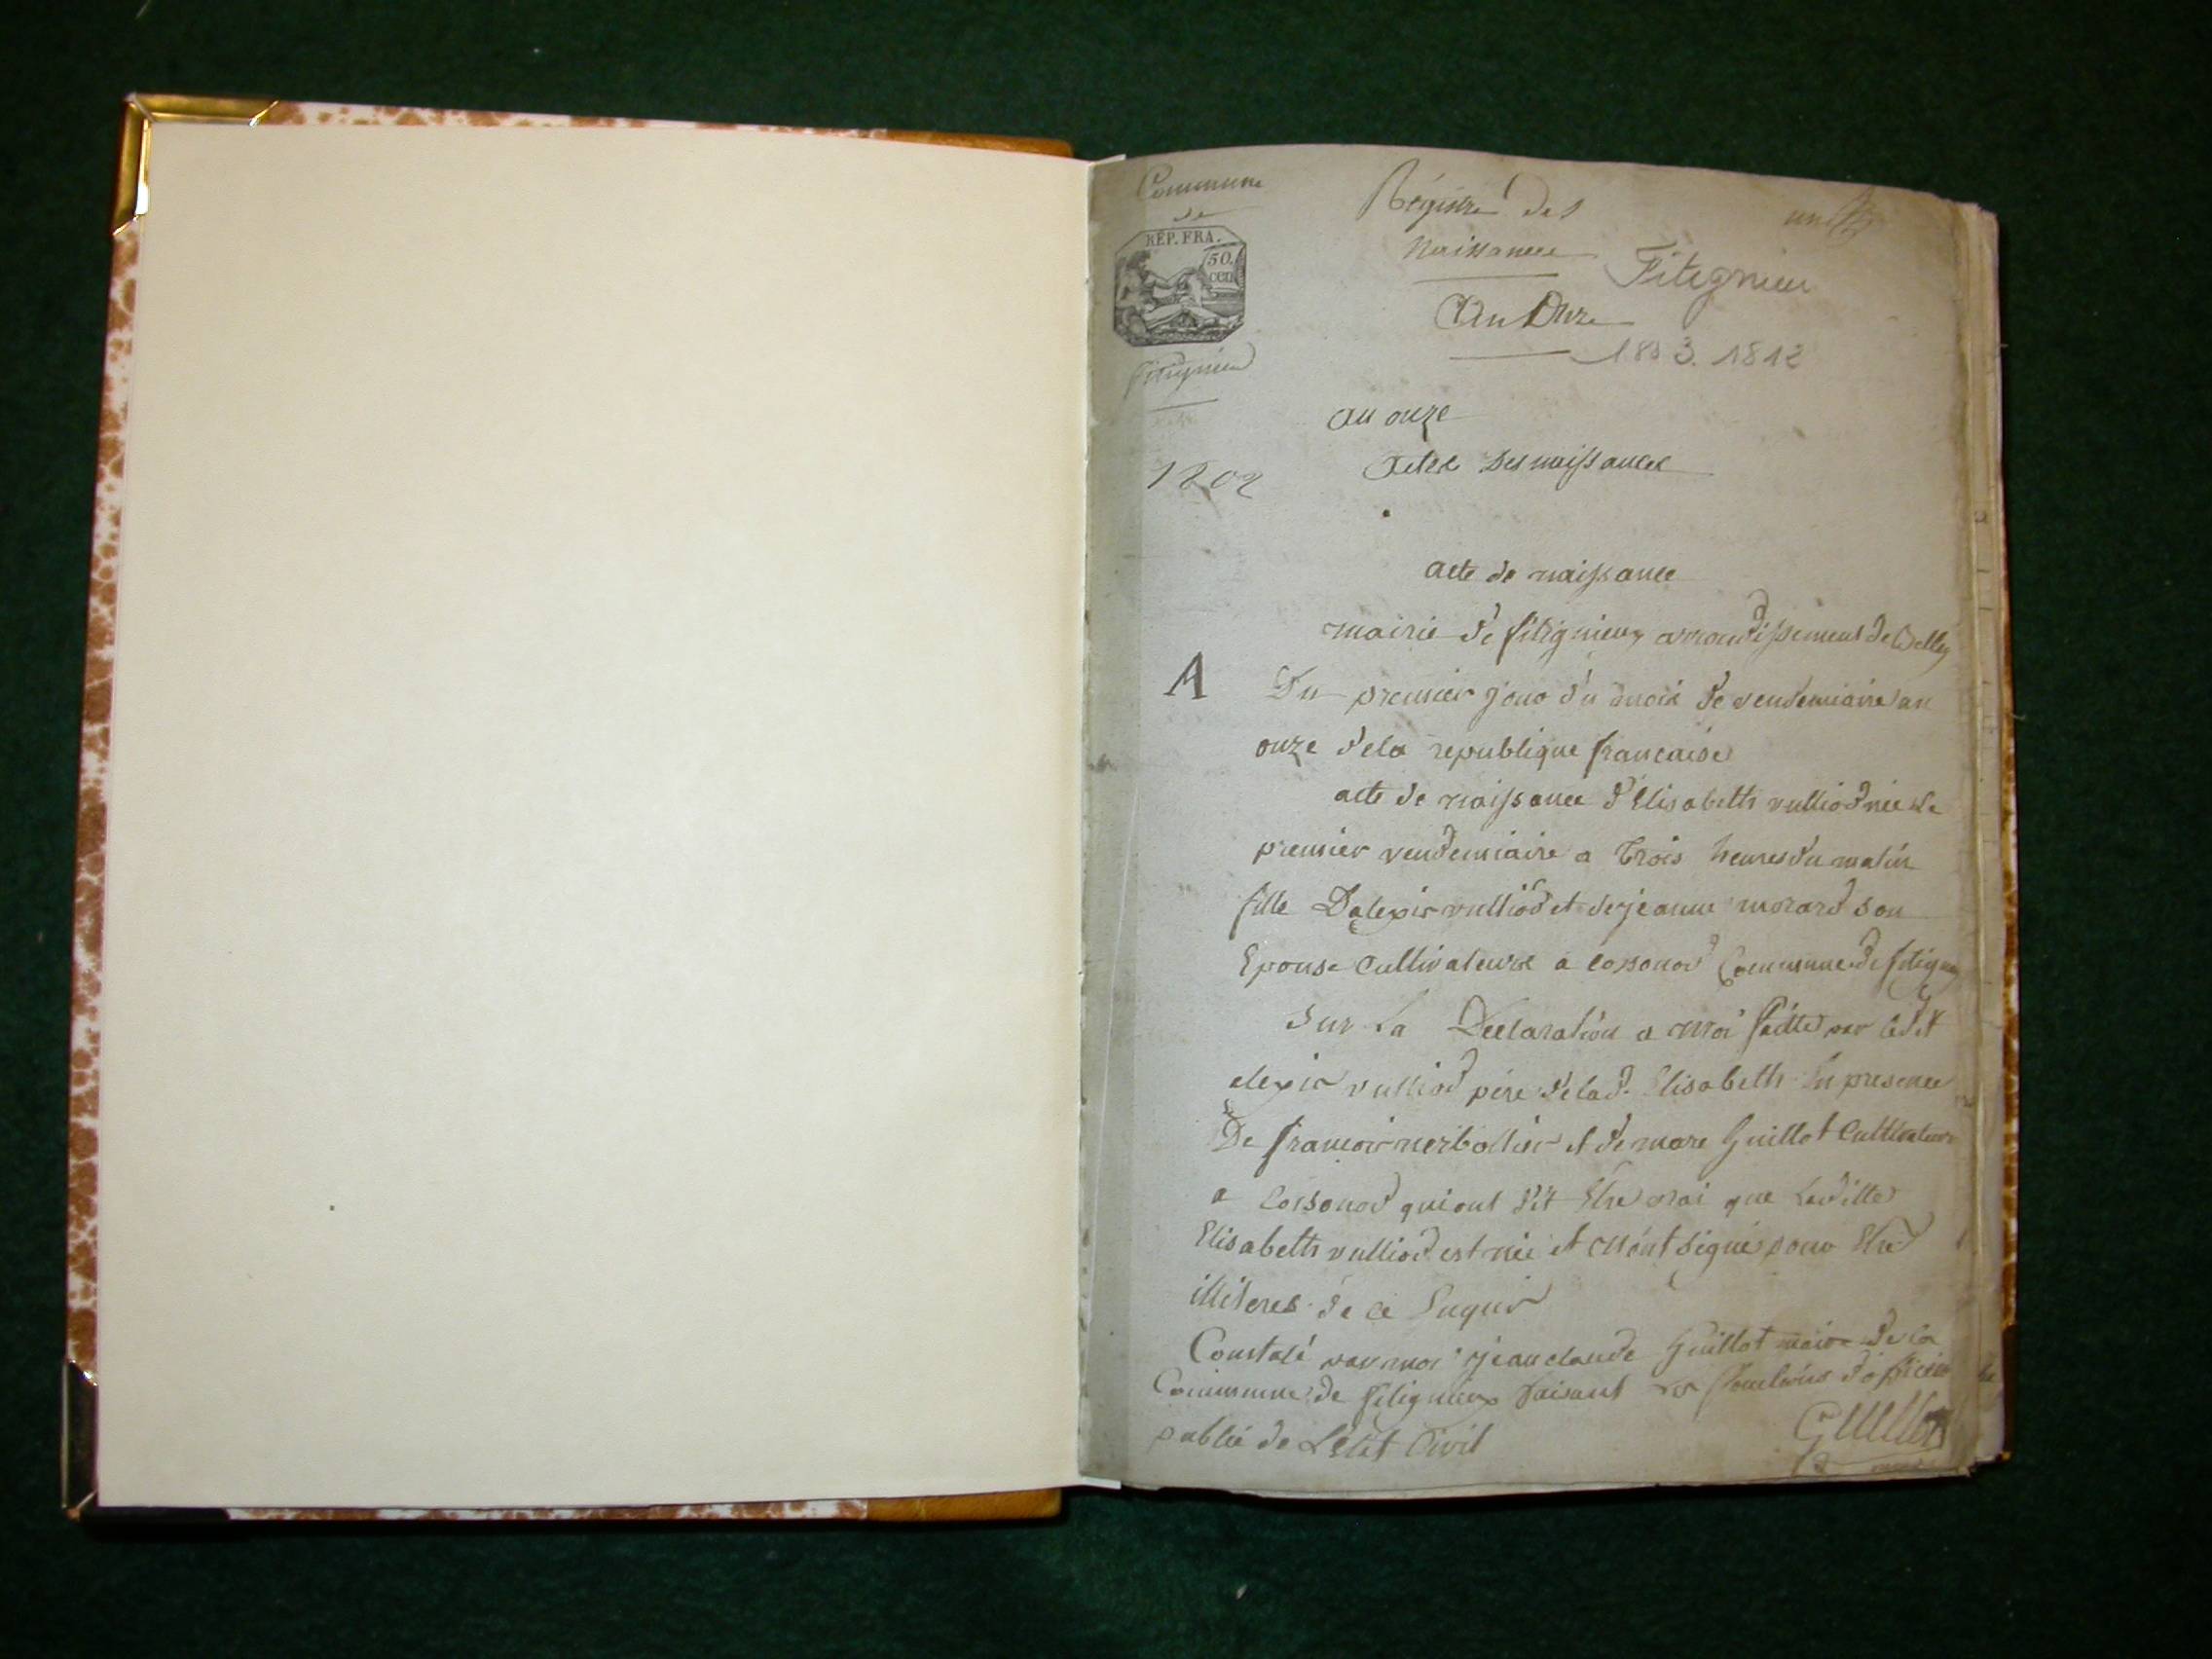 Commune
de
RÉP. FRA.
50.
cen
fitignieu
Régistre des
Naissances
un
Fitignieu
An Onze
1803. 1812
an onze
1802
Actes Des naissances
acte de naissance
mairie de fitignieux arrondissement de Belley
A
Du premier jour du mois de vendemiaire an
onze de la republique francaise
acte de naissance d'Elisabeth vulliod née le
premier vendemiaire a trois heures du matin
fille D'alexis vulliod et de jeanne morard son
Epouse Cultivateurs a cossonod Commune de fitignieu
Sur La Declaration a moi faitte par ledit
alexis vulliod pére de lad. Elisabeth En presence
De francois merbollier et de marc Guillot Cultivateurs
a Cossonod qui ont dit Etre vrai que Laditte
Elisabeth vulliod est née et n'ont signé pour Etre
illiteres de ce Enquis
Constaté par moi jean claude Guillot maire de la
Commune de fitignieux faisant les fonctions d'officier
public de L'état Civil
Guillot